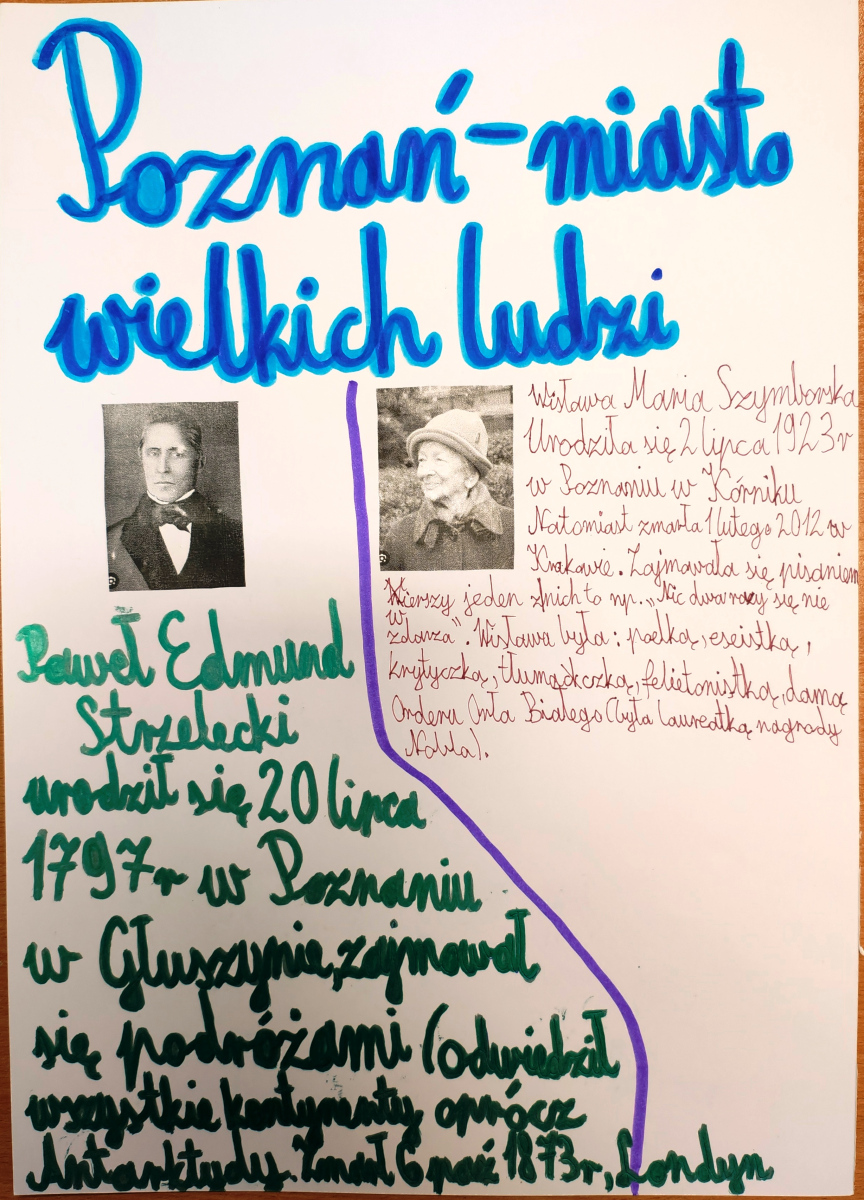 Poznań - miasto
wielkich ludzi
Paweł Edmund
Strzelecki
urodził się 20 lipca
1797r w Poznaniu
w Głuszynie, zajmował
się podróżami (odwiedził
wszystkie kontynenty oprócz
Antarktydy. Zmarł 6 paź 1873r, Londyn
Wisława Maria Szymborska
Urodziła się 2 lipca 1923r
w Poznaniu w Kórniku
Natomiast zmarła 1 lutego 2012 w
Krakowie. Zajmowała się pisaniem
Wierszy jeden z nich to np. „Nic dwa razy się nie
w
zdarza". Wisława była: poetką, eseistką,
krytyczką, tłumaczką, felietonistką, damą
Orderu Orła Białego (była laureatką nagrody
Nobla).